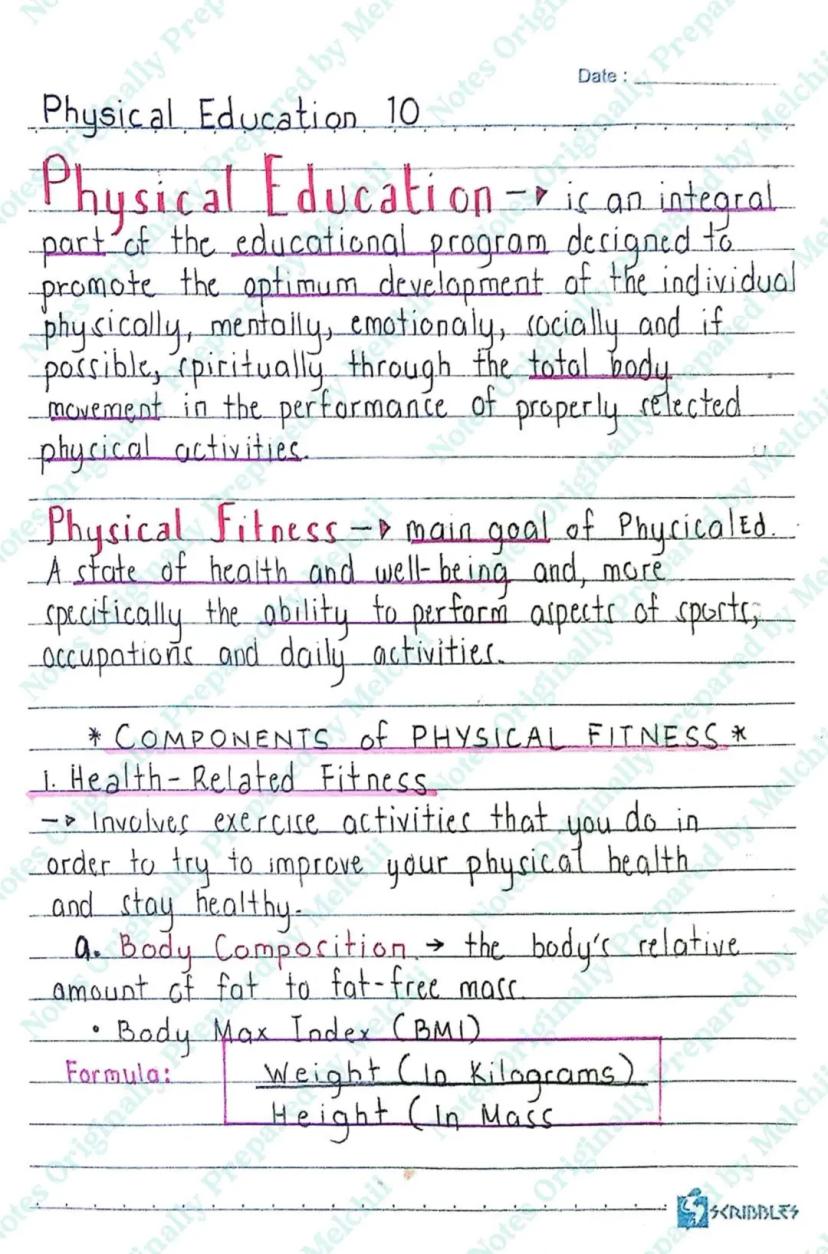 Date :
Physical Education 10
Physical Education → is an integral
part of the educational program designed to
promote the optimum development of the individual
physically, mentally, emotionaly, socially and if
possible, spiritually through the total body
movement in the performance of properly selected
physical activities.
Physical Fitness → main goal of Physical Ed.
A state of health and well-being and, more
specifically the ability to perform aspects of sports,
occupations and daily activities.
* COMPONENTS of PHYSICAL FITNESS *
1. Health-Related Fitness
→ Involves exercise activities that you do in
order to try to improve your physical health
and stay healthy.
a. Body Composition → the body's relative
amount of fat to fat-free mass.
• Body Max Index (BMI)
Formula: Weight (In Kilograms)
Height (In Mass
SCRIBBLES
Notes Originally Prepared by Melchii